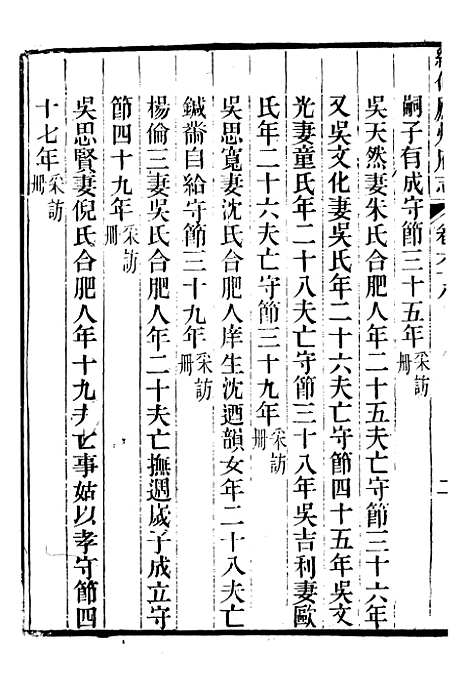 嗣子有成守節三十五年採訪冊
吳天然妻朱氏合肥人年二十五夫亡守節三十六年
又吳文化妻吳氏年二十六夫亡守節四十五年吳文
光妻童氏年二十八夫亡守節三十八年吳吉利妻歐
氏年二十六夫亡守節三十九年采訪冊
吳思寬妻沈氏合肥人庠生沈迺韻女年二十八夫亡
鍼黹自給守節三十九年采訪冊
楊倫三妻吳氏合肥人年二十夫亡撫遇歲子成立守
節四十九年采訪冊
吳思賢妻倪氏合肥人年十九夫亡事姑以孝守節四
十七年采訪冊